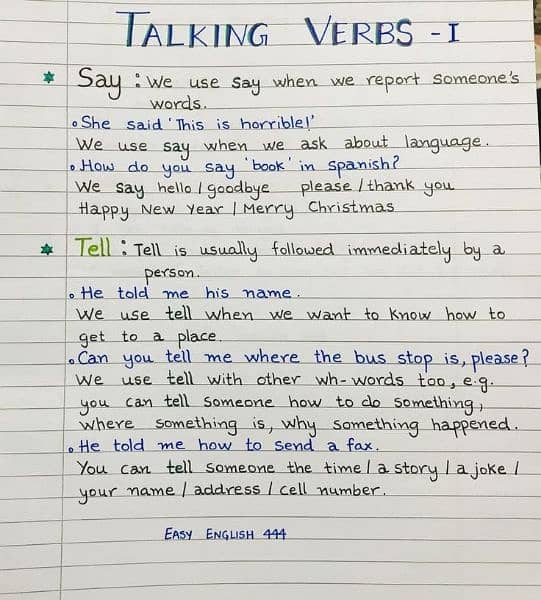 TALKING VERBS - I
Say : We use say when we report someone's
words.
She said 'This is horrible!'
We use say when we ask about language.
How do you say 'book' in Spanish?
We say hello / goodbye please / thank you
Happy New Year / Merry Christmas
Tell : Tell is usually followed immediately by a
person.
He told me his name.
We use tell when we want to know how to
get to a place.
Can you tell me where the bus stop is, please?
We use tell with other wh-words too, e.g.
you can tell someone how to do something,
where something is, why something happened.
He told me how to send a fax.
You can tell someone the time / a story / a joke /
your name / address / cell number.
EASY ENGLISH 444